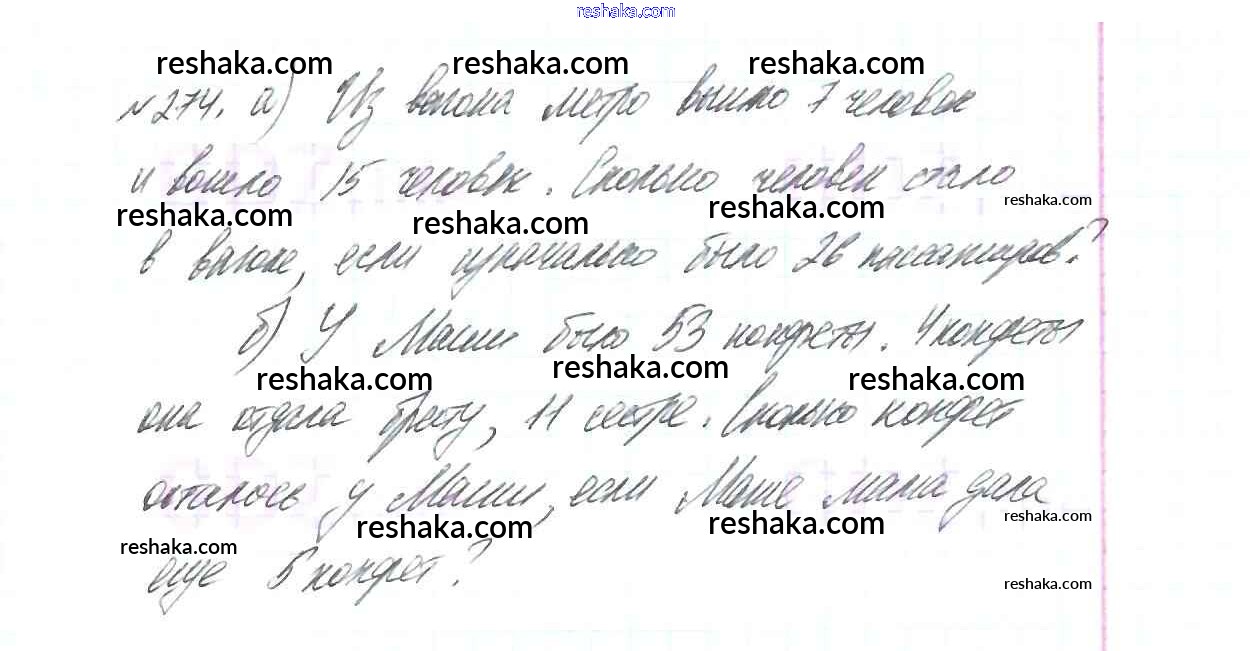 reshaka.com
reshaka.com reshaka.com reshaka.com
№274. а) Из вагона метро вышло 7 человек
и вошло 15 человек. Сколько человек стало
reshaka.com reshaka.com reshaka.com reshaka.com
в вагоне, если изначально было 26 пассажиров?
б) У Маши было 53 конфеты. 4 конфеты
reshaka.com reshaka.com reshaka.com
она отдала брату, 11 сестре. Сколько конфет
осталось у Маши, если Маше мама дала
reshaka.com reshaka.com reshaka.com reshaka.com
еще 5 конфет?
reshaka.com